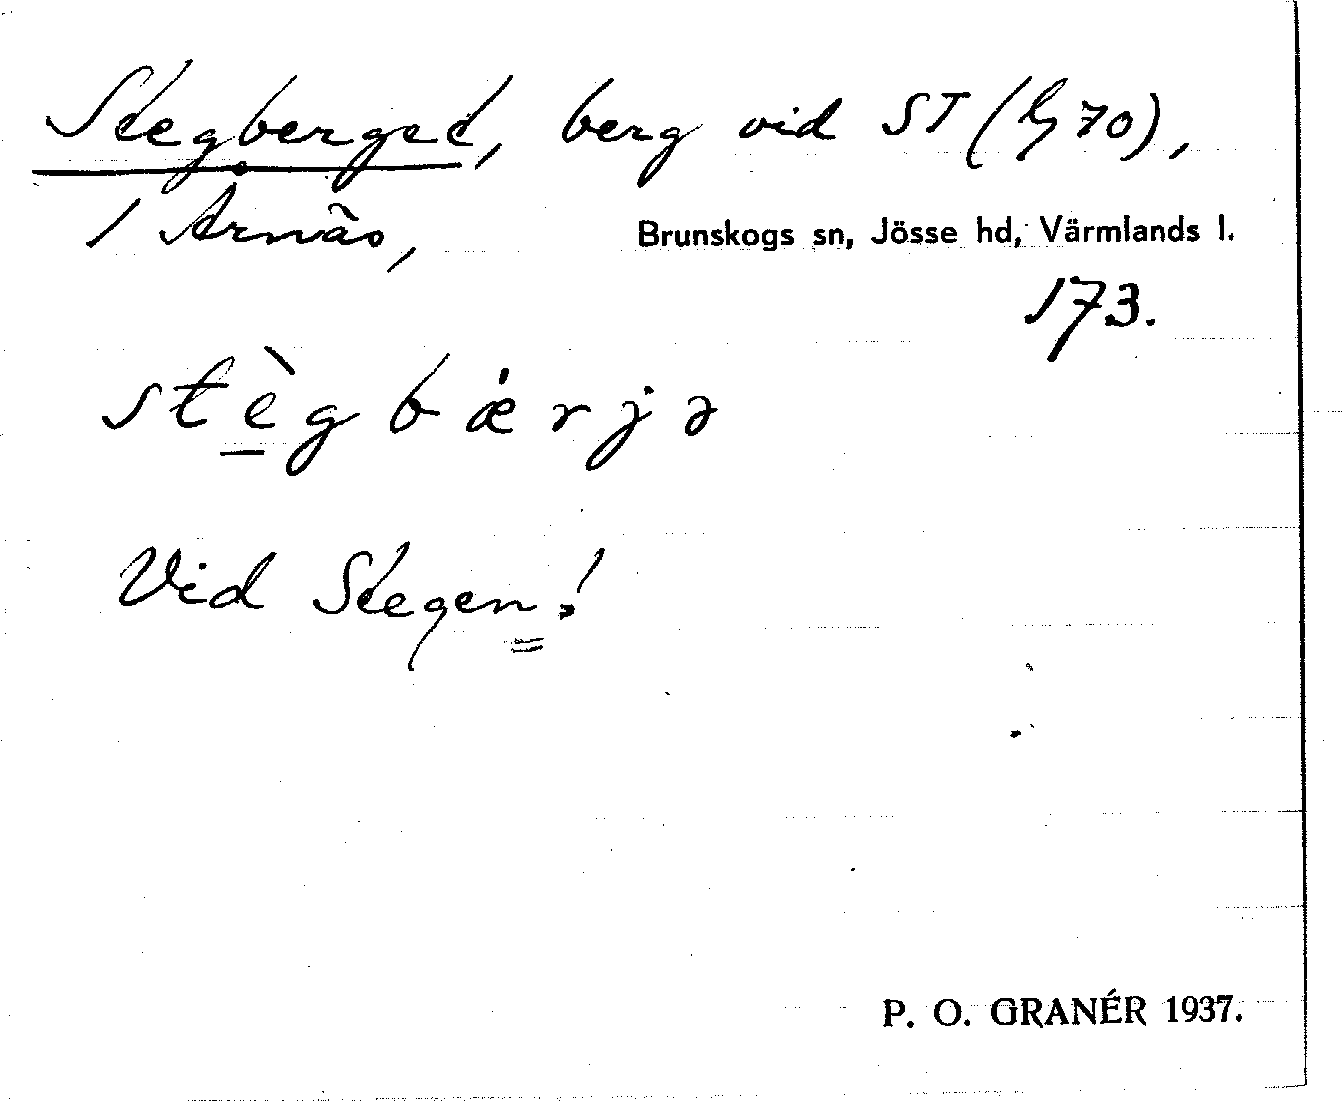 Stegberget, berg vid ST (G 70),
1 Årnäs, Brunskogs sn, Jösse hd, Värmlands l.
173.
stègbǽrjə
Vid Stegen!
P. O. GRANÉR 1937.